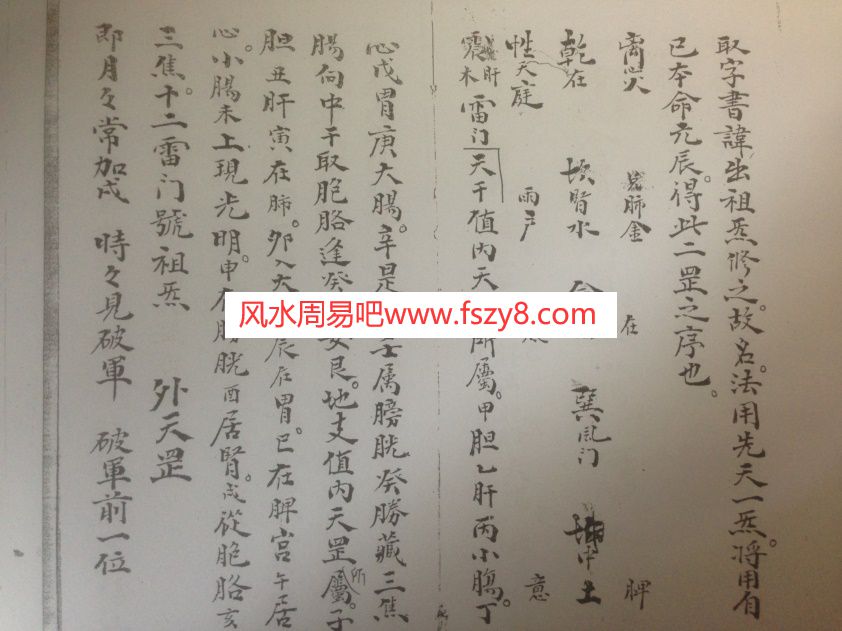 取字書諱出祖炁修之。故名。法用先天一炁。将用自
已本命元辰。得此二罡之序也。
离心火 肺金 在 脾
乾在 坎腎水 巽風门 坤中土
性天庭 雨户 意
肝
震木 雷门 天干值内天 所屬。甲胆乙肝丙小腸。丁
心戊胃庚大腸。辛是 壬属膀胱癸勝藏三焦
腸向中干取胞胳逢癸 艮。地支值内天罡所屬。子
胆丑肝寅在肺。卯入大 辰在胃。已在脾宫午居
心。小腸未上現光明。申 膀胱酉居腎。戍從胞胳亥
三焦。十二雷门號祖炁 外天罡
即月々常加戍 時々見破軍 破軍前一位
风水周易吧www.fszy8.com